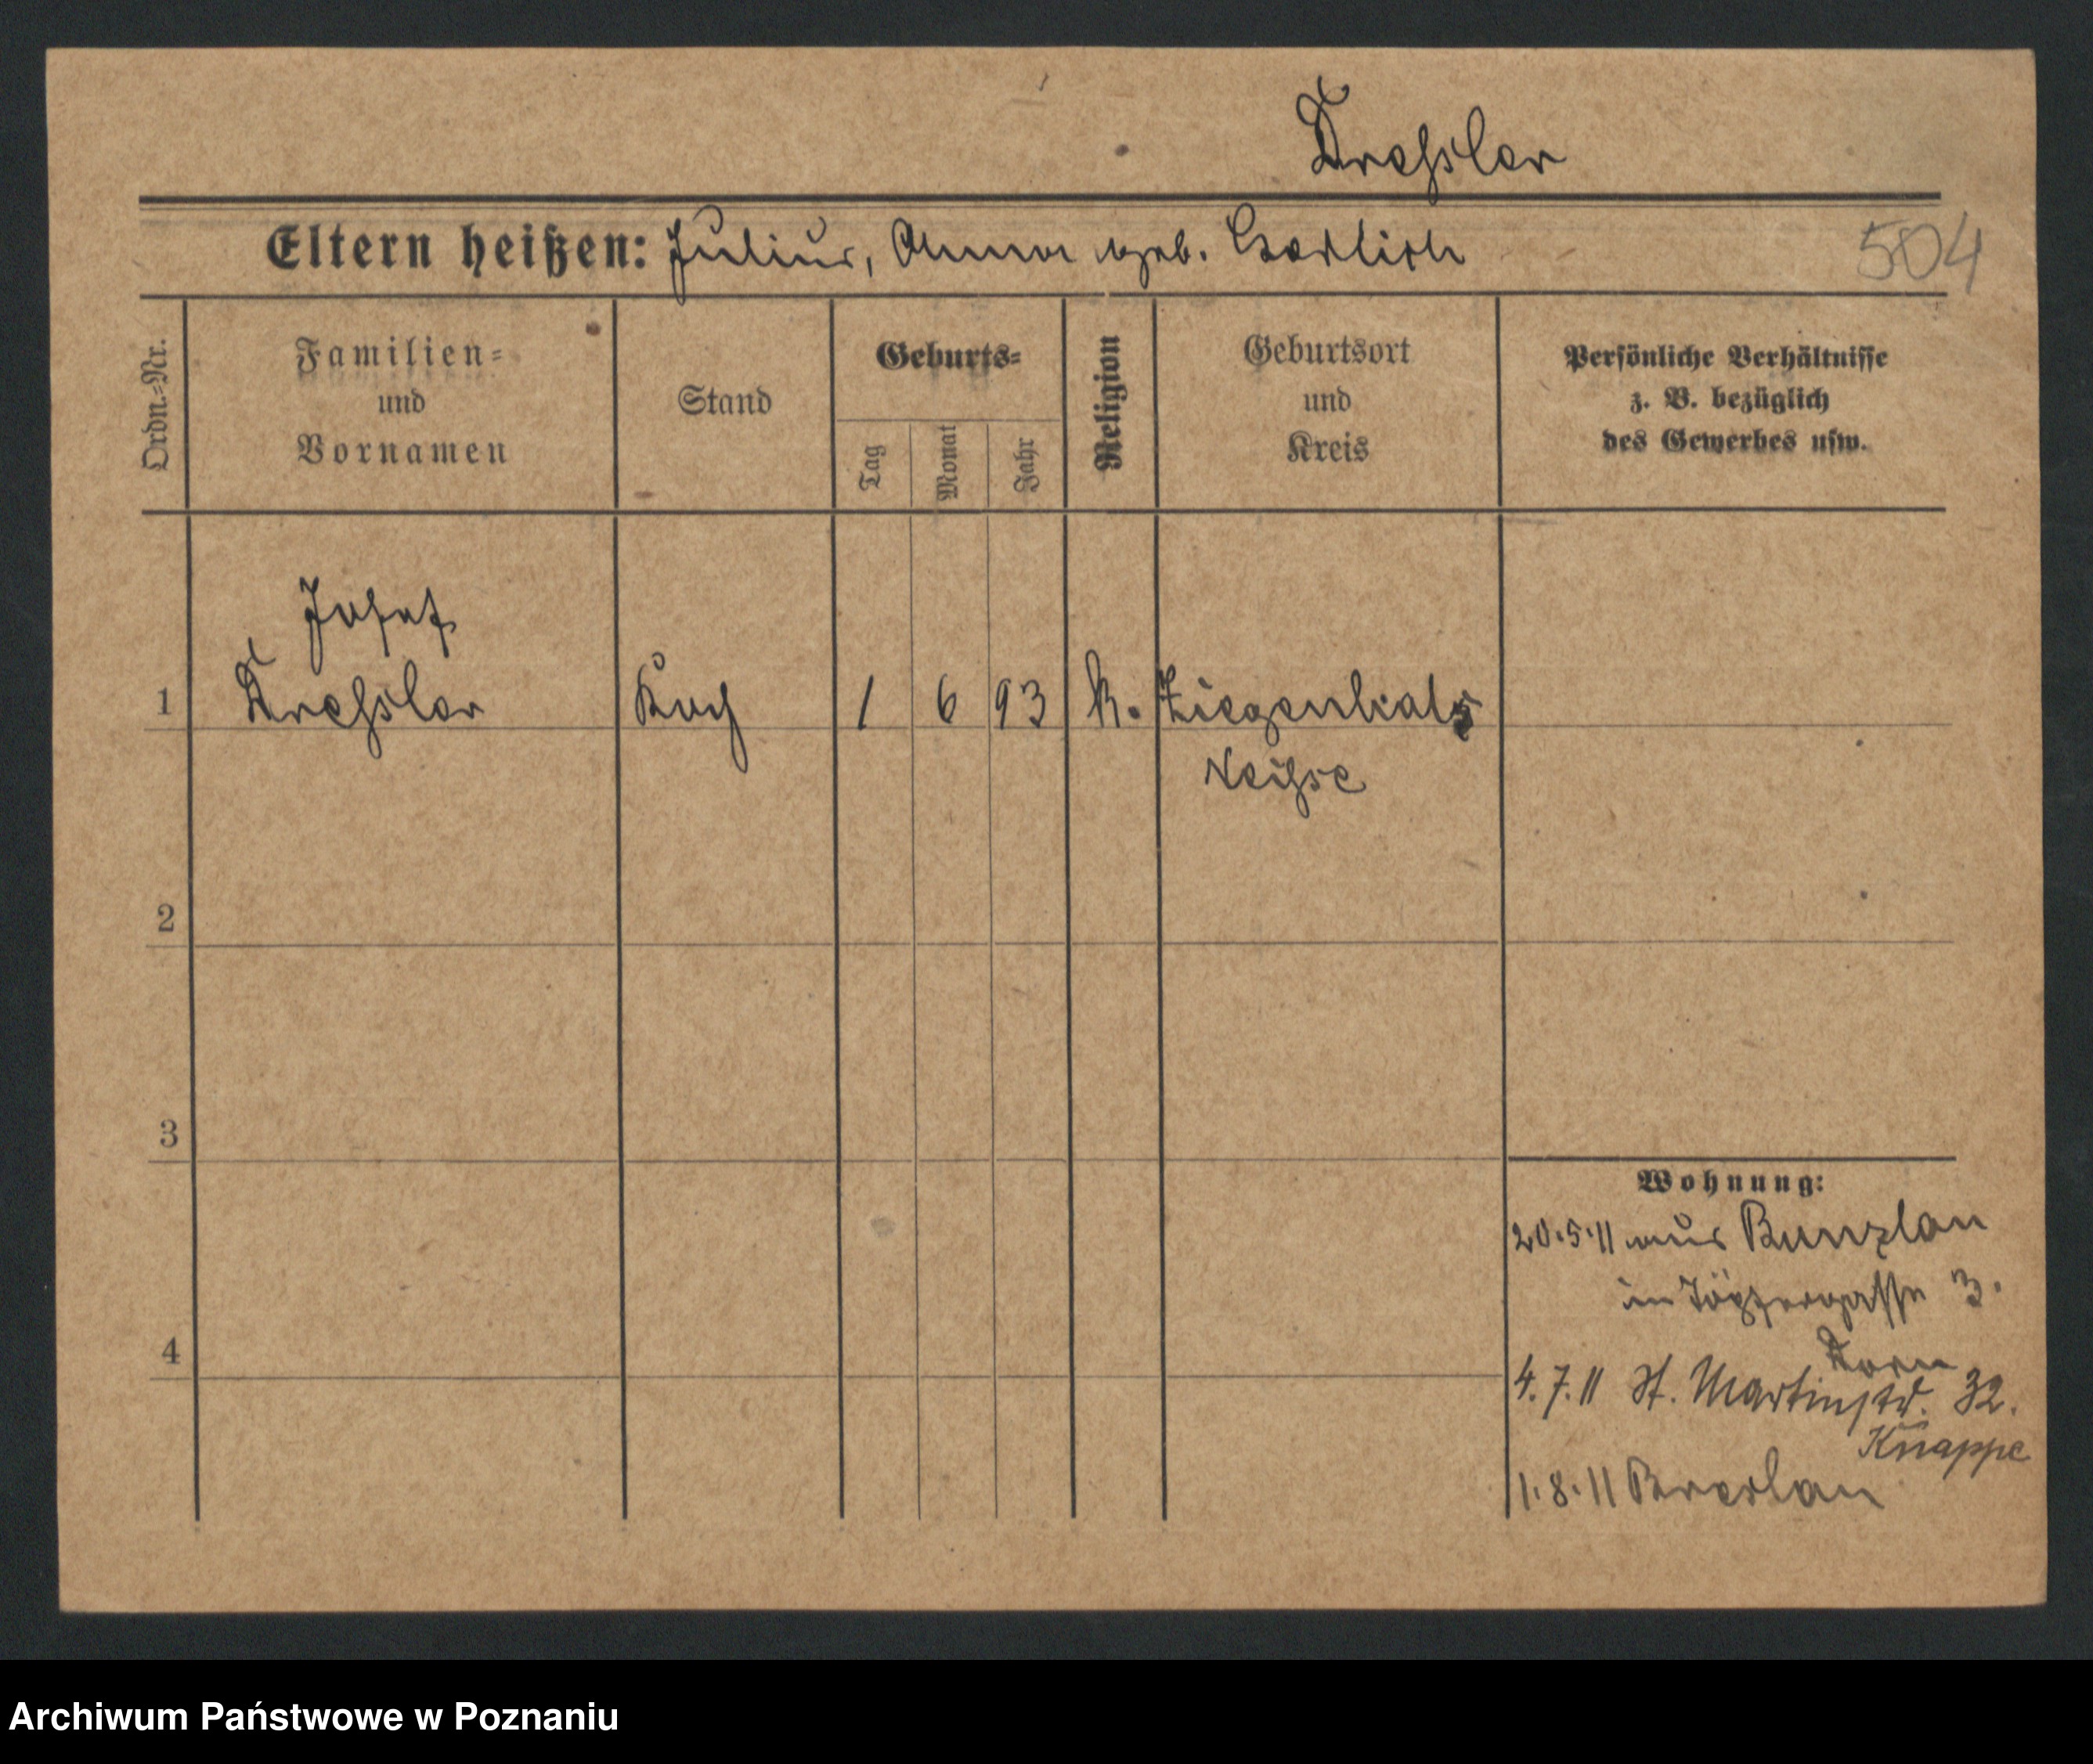 Dressler
Eltern heißen: Julius, Anna geb.
504
Ordn.-Nr.
Familien-
und
Vornamen
Stand
Geburts-
Tag
Monat
Jahr
Religion
Geburtsort
und
Kreis
Persönliche Verhältnisse
z. B. bezüglich
des Gewerbes usw.
Josef
1 Dressler Koch 1 6 93 k. Ziegenhals
Neisse
2
3
Wohnung:
20.5.11 aus Bunzlau
in Töpfergasse 3.
4
Dorn
4.7.11 St. Martinstr. 32.
Knappe
1.8.11 Breslau
Archiwum Państwowe w Poznaniu